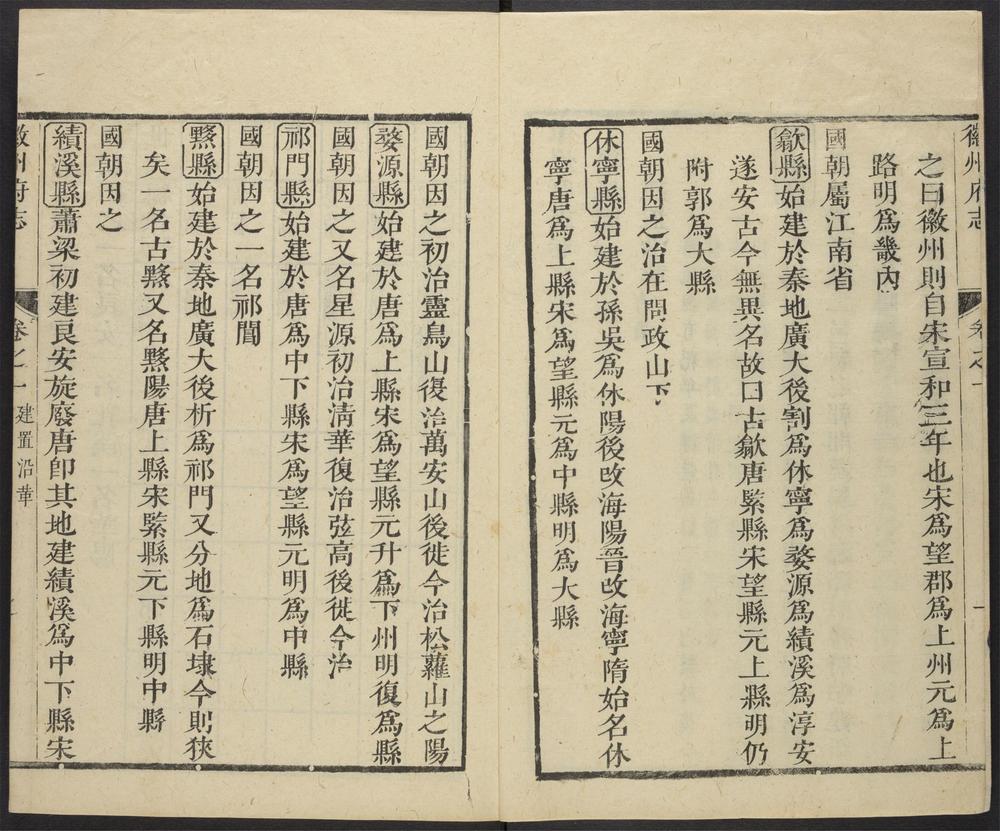 徽州府志
卷之一
之曰徽州則自宋宣和三年也宋為望郡為上州元為上
路明為畿內
國朝屬江南省
歙縣始建於秦地廣大後割為休寧為婺源為績溪為淳安
遂安古今無異名故曰古歙唐緊縣宋望縣元上縣明仍
附郭為大縣
國朝因之治在問政山下
休寧縣始建於孫吳為休陽後改海陽晉改海寧隋始名休
寧唐為上縣宋為望縣元為中縣明為大縣
國朝因之初治靈鳥山復治萬安山後徙今治松蘿山之陽
婺源縣始建於唐為上縣宋為望縣元升為下州明復為縣
國朝因之又名星源初治清華復治弦高後徙今治
祁門縣始建於唐為中下縣宋為望縣元明為中縣
國朝因之一名祁閶
黟縣始建於秦地廣大後析為祁門又分地為石埭今則狹
矣一名古黟又名黟陽唐上縣宋緊縣元下縣明中縣
國朝因之
績溪縣蕭梁初建良安旋廢唐卽其地建績溪為中下縣宋
徽州府志
卷之一 建置沿革